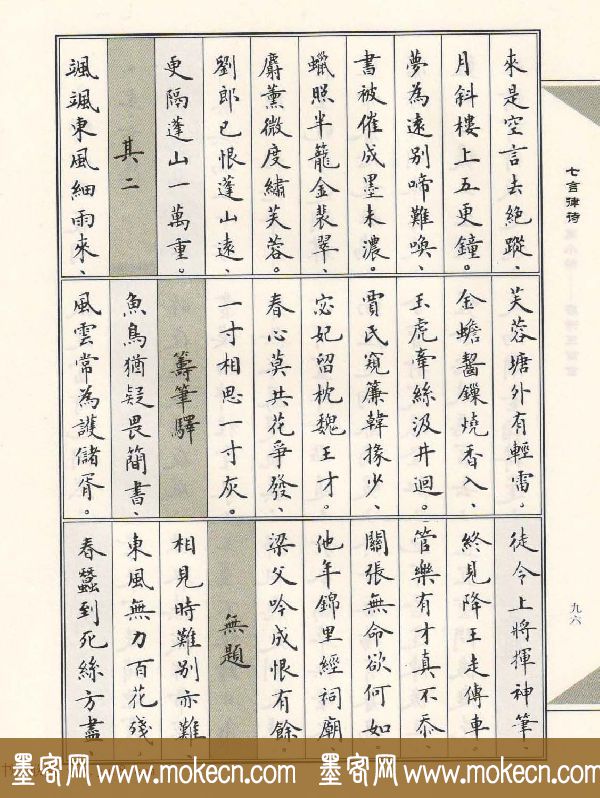 來是空言去絕蹤、
月斜樓上五更鐘。
夢為遠別啼難喚、
書被催成墨未濃。
蠟照半籠金翡翠、
麝薰微度繡芙蓉。
劉郎已恨蓬山遠、
更隔蓬山一萬重。
其二
颯颯東風細雨來、
芙蓉塘外有輕雷。
金蟾齧鏁燒香入、
玉虎牽絲汲井迴。
賈氏窺簾韓掾少、
宓妃留枕魏王才。
春心莫共花爭發、
一寸相思一寸灰。
籌筆驛
魚鳥猶疑畏簡書、
風雲常為護儲胥。
徒令上將揮神筆、
終見降王走傳車。
管樂有才真不忝、
關張無命欲何如。
他年錦里經祠廟、
梁父吟成恨有餘。
無題
相見時難別亦難
東風無力百花殘、
春蠶到死絲方盡、
七言律詩
九六
墨客网 www.mokecn.com 墨客网 www.mokecn.com